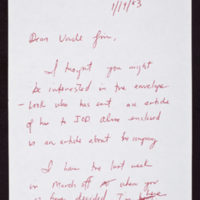 1/19/83
Dear Uncle Jim,
I thought you might
be interested in the envelope
- look who has sent an article
of her to IOD alone enclosed
is an article about her company
I have the last week
in March off when you
have decided I'm